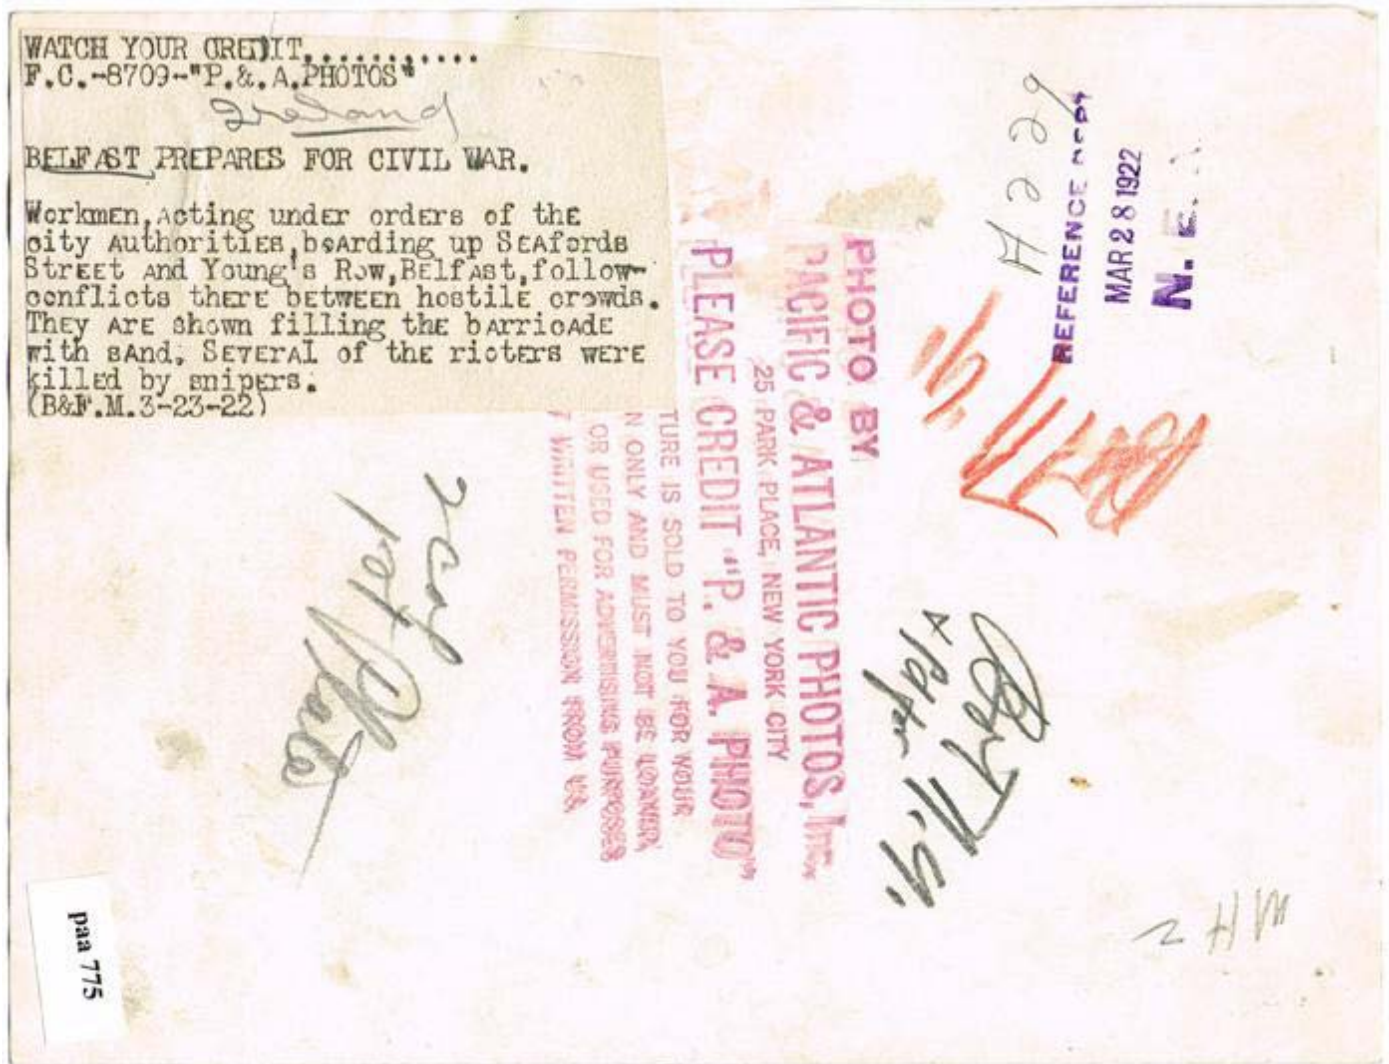 WATCH YOUR CREDIT............
F.C.-8709-"P.& A.PHOTOS"
Ireland
BELFAST PREPARES FOR CIVIL WAR.
Workmen,acting under orders of the
city authorities,boarding up Seafords
Street and Young's Row,Belfast,follow-
conflicts there between hostile crowds.
They are shown filling the barricade
with sand. Several of the rioters were
killed by snipers.
(B&F.M.3-23-22)
PHOTO BY
PACIFIC & ATLANTIC PHOTOS, INC.
25 PARK PLACE, NEW YORK CITY
PLEASE CREDIT "P. & A. PHOTO"
TURE IS SOLD TO YOU FOR YOUR
N ONLY AND MUST NOT BE LOANED,
OR USED FOR ADVERTISING PURPOSES
T WRITTEN PERMISSION FROM US.
A229
REFERENCE COPY
MAR 28 1922
N. E.
2 col
paa 775